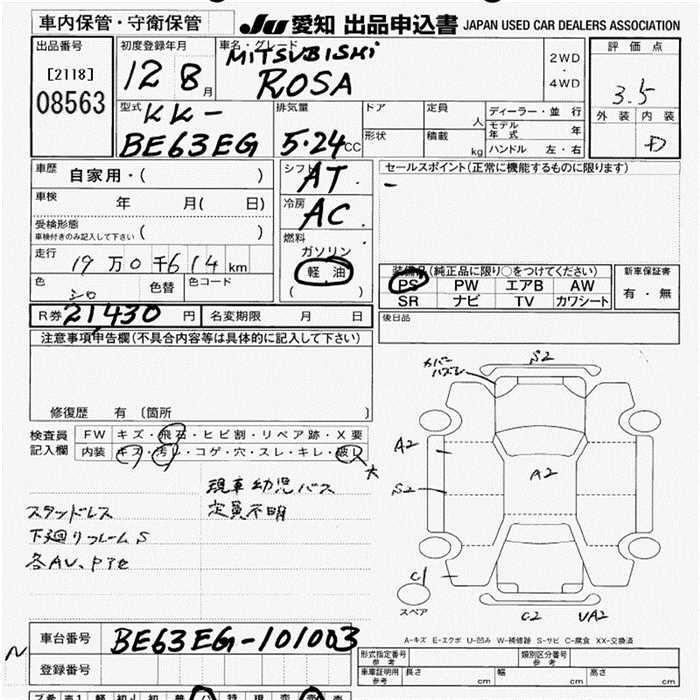 車内保管・守衛保管
JU 愛知 出品申込書 JAPAN USED CAR DEALERS ASSOCIATION
出品番号
[2118]
08563
初度登録年月
12 8月
車名・グレード
MITSUBISHI
ROSA
2WD
・
4WD
評価点
3.5
外装 内装
D
型式
KK-
BE63EG
排気量
5.24CC
ドア
定員
人
形状
積載
kg
ディーラー・並行
モデル年式
年
ハンドル 左・右
車歴
自家用・( )
車検
年 月( 日)
受検形態
車検付きのみ記入して下さい ( )
走行
19万0千614km
色
シロ
色替
色コード
シフト
AT
冷房
AC
燃料
ガソリン
軽油
( )
セールスポイント(正常に機能するものに限ります)
装備品(純正品に限り○をつけてください)
PS PW エアB AW
SR ナビ TV カワシート
新車保証書
有・無
後日品
R券 21,430 円
名変期限 月 日
注意事項申告欄(不具合内容等は具体的に記入して下さい)
修復歴 有 〔箇所 〕
検査員
記入欄
FW キズ・飛石・ヒビ割・リペア跡・X要
内装 キズ・汚レ・コゲ・穴・スレ・キレ・破レ
現車幼児バス
定員不明
スタッドレス
下廻りフレームS
カバー
ハズレ
S2
A2
A2
S2
C1
C2
UA2
スペア
A-キズ E-エクボ U-凹み W-補修跡 S-サビ C-腐食 XX-交換済
N
車台番号
BE63EG-101003
登録番号
形式指定番号
参考
類別区分番号
参考
車庫証明用
参考
長さ cm
幅 cm
高さ cm